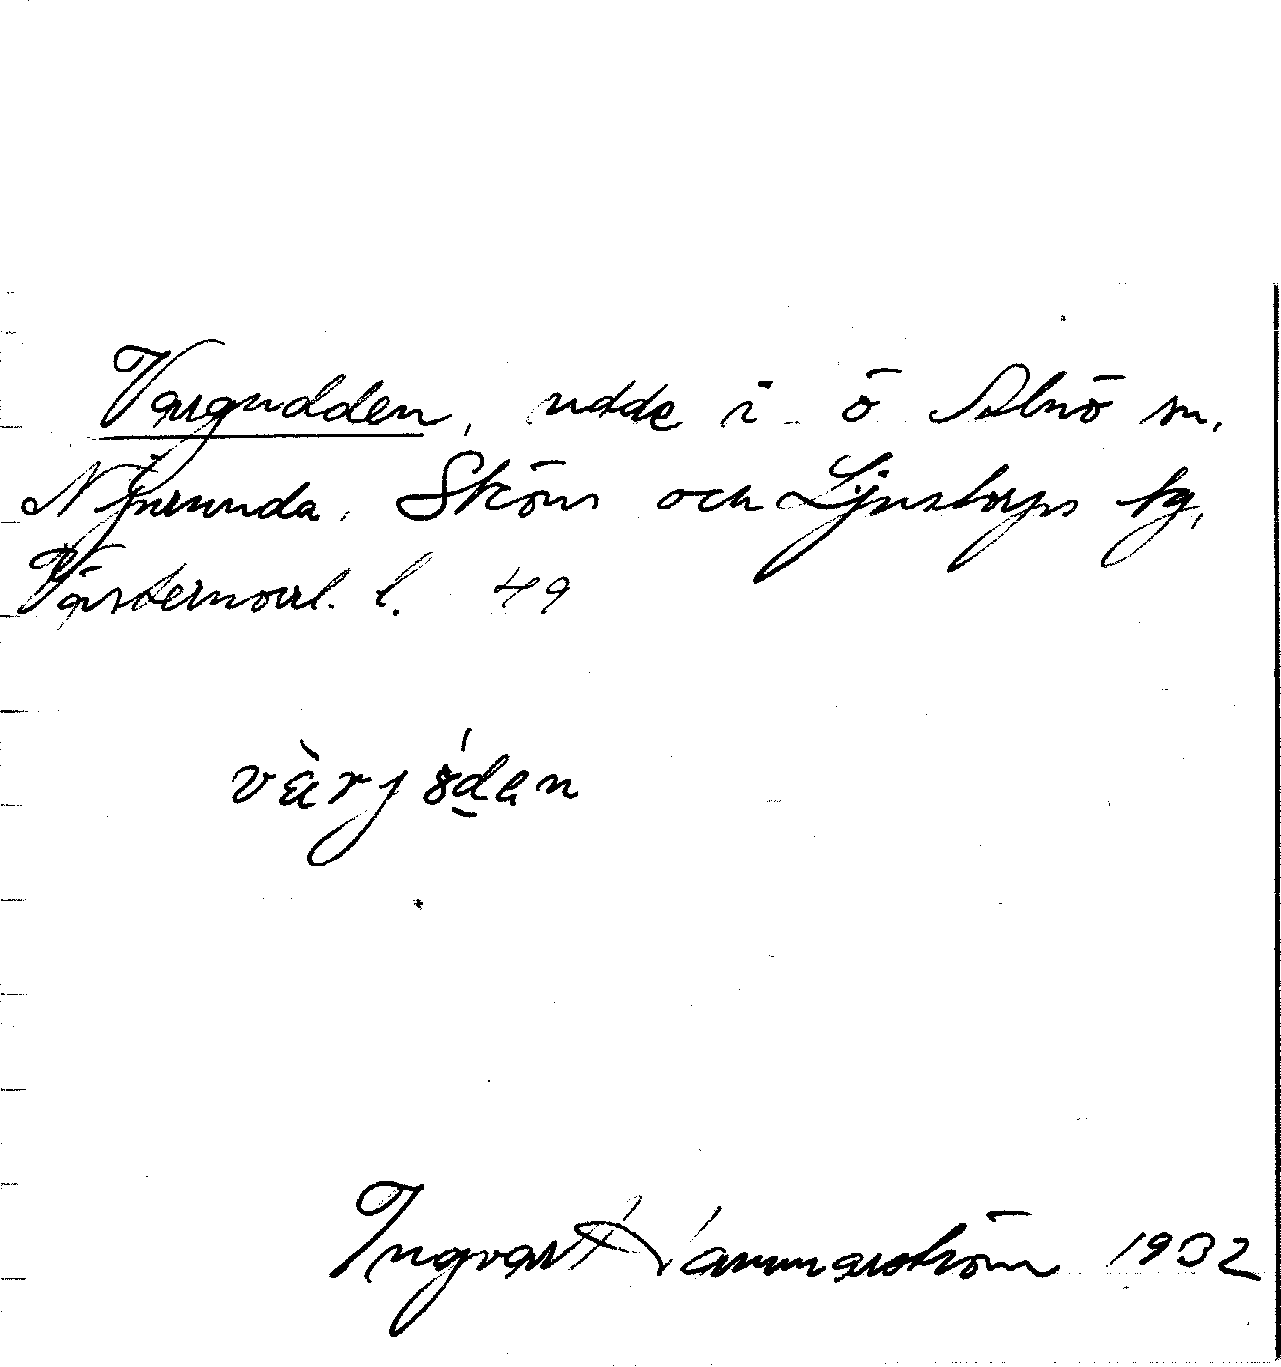 Vargudden, udde i ö Alnö sn,
Njurunda, Sköns och Ljustorps tg,
Västernorrl. l. 49
vàrj ó̤dan
Ingvar Hammarström 1932